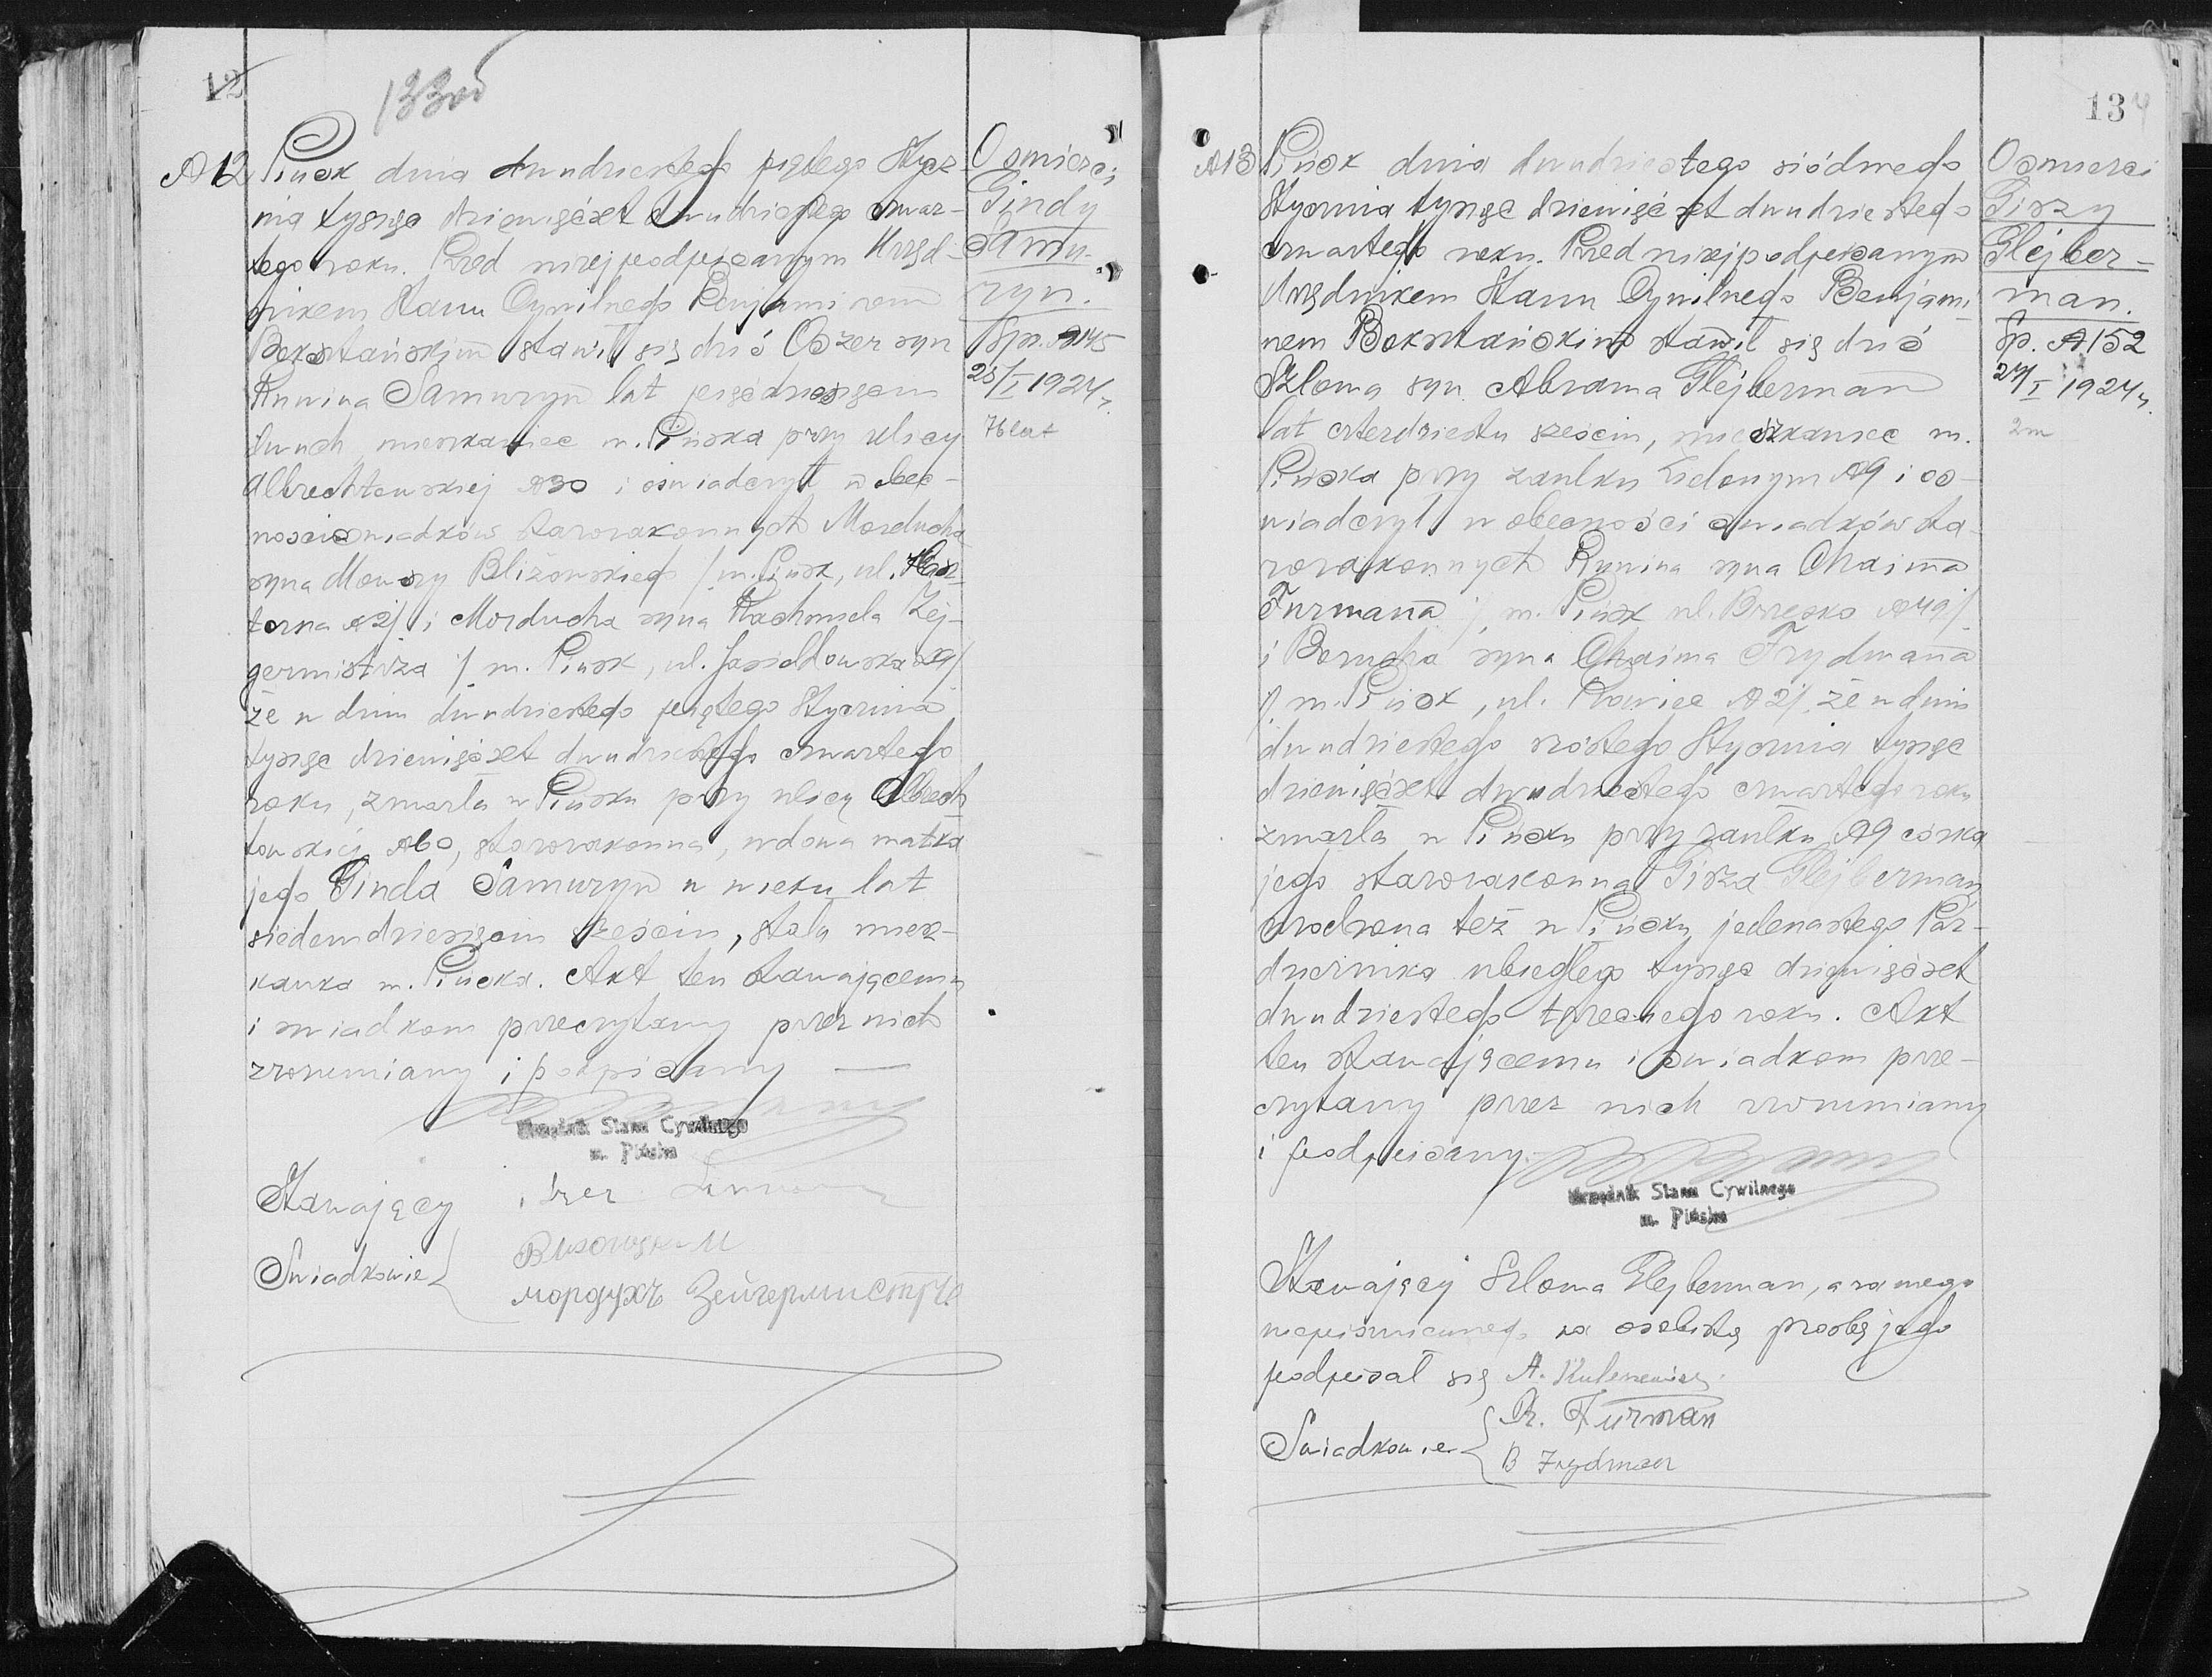 12
133 об
№12 Pińsk dnia dwudziestego piątego Stycz-
nia tysiąc dziewięćset dwudziestego czwar-
tego roku. Przed niżej podpisanym Urzęd-
nikiem Stanu Cywilnego Benjaminem
Bokształskim stawił się dziś Oszer syn
Runina Samuryn lat pięćdziesięciu
dwuch, mieszkaniec m. Pińska przy ulicy
Albrechtowskiej №30 i oświadczył w obec-
ności świadków starozakonnych Morducha
syna Mowszy Bliżowskiego /m. Pińsk, ul.
torna №2/ i Morducha syna Rachmiela Zej-
germistrza /m. Pińsk, ul. Jasiołdowska 29/
że w dniu dwudziestego piątego Stycznia
tysiąc dziewięćset dwudziestego czwartego
roku, zmarła w Pińsku przy ulicy Albrech
towskiej №60, starozakonna, wdowa matka
jego Ginda Samuryn w wieku lat
siedemdziesięciu sześciu, stała miesz-
kanka m. Pińska. Akt ten stawającemu
i świadkom przeczytany przez nich
zrozumiany i podpisany —
Urzędnik Stanu Cywilnego
m. Pińska
Stawający
Świadkowie
мордухъ Зейгермистръ
O śmierci
Gindy
Samu-
ryn.
Sp. №145
25/I 1924 r.
76 lat
134
№13 Pińsk dnia dwudziestego siódmego
Stycznia tysiąc dziewięćset dwudziestego
czwartego roku. Przed niżej podpisanym
Urzędnikiem Stanu Cywilnego Benjami
nem Bokształskim stawił się dziś
Szloma syn Abrama Glejberman
lat czterdziestu sześciu, mieszkaniec m.
Pińska przy zaułku Zielonym №9 i oś-
wiadczył w obecności świadków sta-
rozakonnych Runina syna Chaima
Furmana /m. Pińsk ul. Brzeska №49/
i Borucha syna Chaima Frydmana
/m. Pińsk, ul. №2/, że w dniu
dwudziestego szóstego Stycznia tysiąc
dziewięćset dwudziestego czwartego roku
zmarła w Pińsku przy zaułku №9 córka
jego starozakonna Gisza Glejberman
urodzona też w Pińsku jedenastego Paź-
dziernika ubiegłego tysiąc dziewięćset
dwudziestego trzeciego roku. Akt
ten stawającemu i świadkom prze-
czytany przez nich zrozumiany
i podpisany.
Urzędnik Stanu Cywilnego
m. Pińska
Stawający Szloma Glejberman, a za niego
niepiśmiennego na osobistą prośbę jego
podpisał się A. Kulesiewicz
Świadkowie R. Furman
B Frydman
O śmierci
Giszy
Glejber-
man.
Sp. №152
27/I 1924 r.
2 m